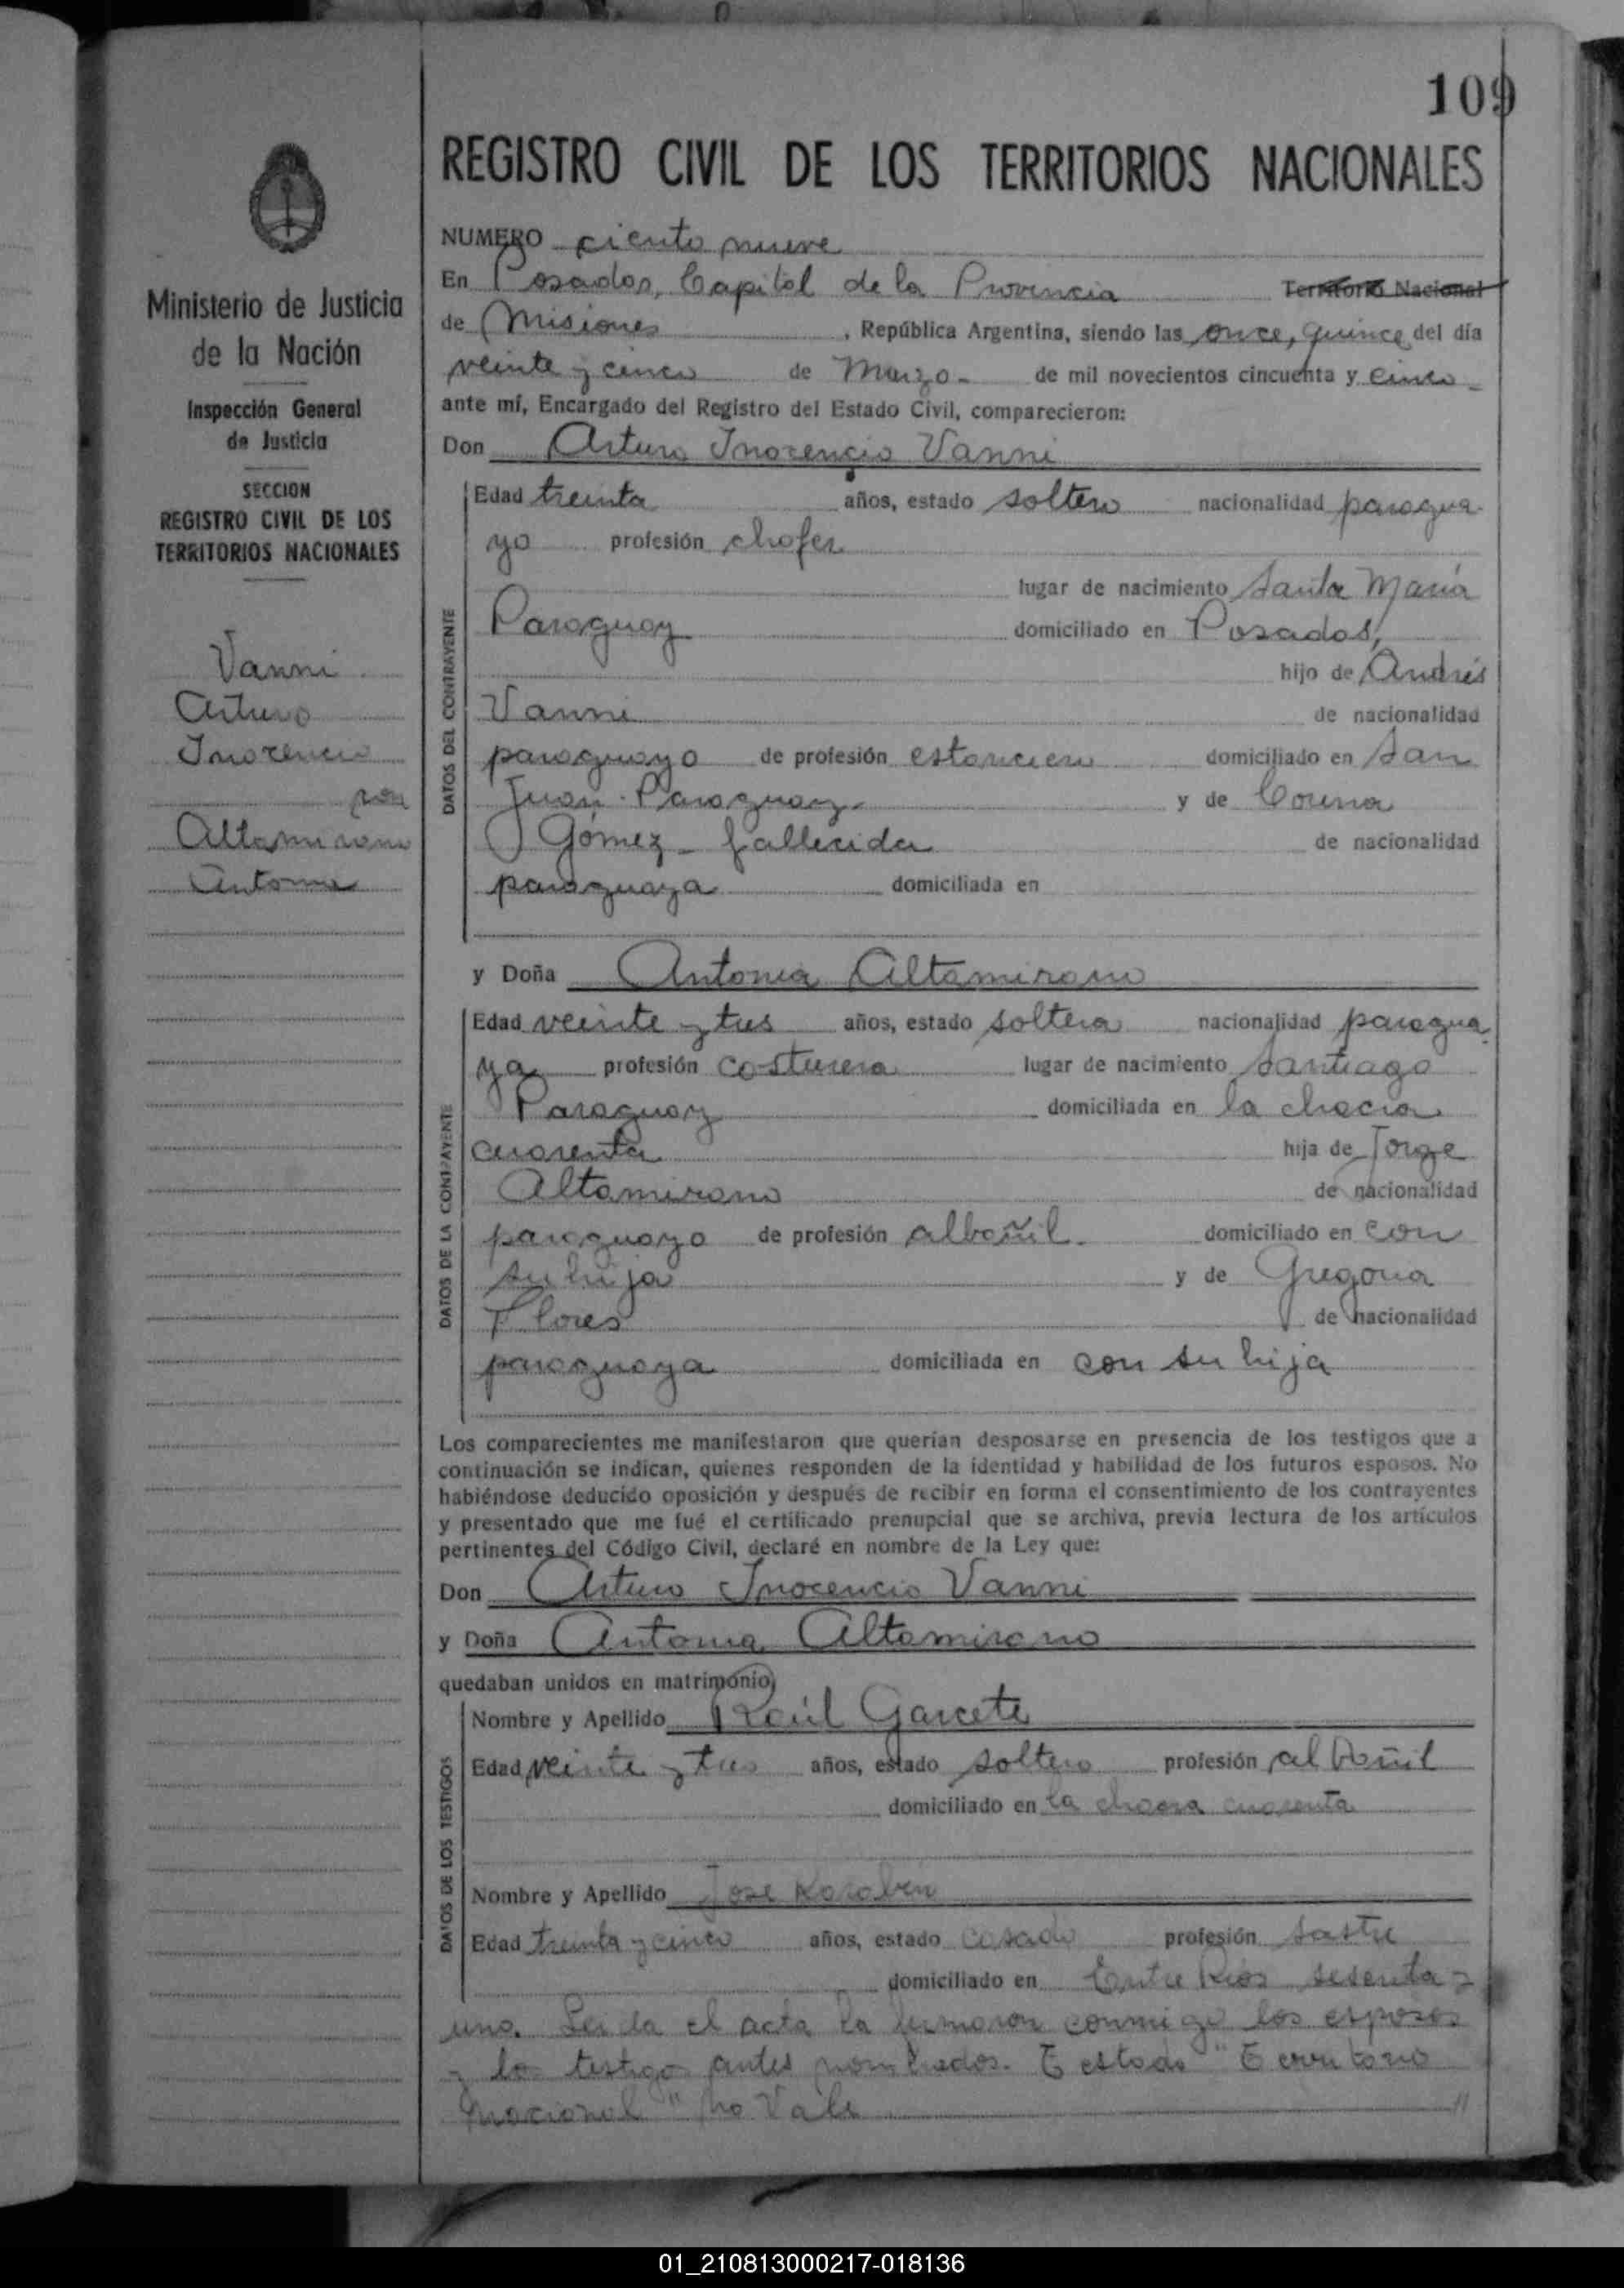 109
REGISTRO CIVIL DE LOS TERRITORIOS NACIONALES
Ministerio de Justicia
de la Nación
Inspección General
de Justicia
SECCION
REGISTRO CIVIL DE LOS
TERRITORIOS NACIONALES
Vanni
Arturo
Inocencio
con
Altamirano
Antonia
NUMERO ciento nueve
En Posadas, Capital de la Provincia Territorio Nacional
de Misiones, República Argentina, siendo las once, quince del día
veinte y cinco de Marzo - de mil novecientos cincuenta y cinco -
ante mí, Encargado del Registro del Estado Civil, comparecieron:
Don Arturo Inocencio Vanni
DATOS DEL CONTRAYENTE
Edad treinta años, estado soltero nacionalidad paragua-
yo profesión chofer
lugar de nacimiento Santa María
Paraguay domiciliado en Posadas,
hijo de Andrés
Vanni de nacionalidad
paraguayo de profesión estanciero domiciliado en San
Juan - Paraguay - y de
Gómez - fallecida de nacionalidad
paraguaya domiciliada en
y Doña Antonia Altamirano
DATOS DE LA CONTRAYENTE
Edad veinte y tres años, estado soltera nacionalidad paragua-
ya profesión costurera lugar de nacimiento Santiago
Paraguay domiciliada en la chacra
cuarenta hija de Jorge
Altamirano de nacionalidad
paraguayo de profesión albañil - domiciliado en con
su hija y de Gregoria
Flores de nacionalidad
paraguaya domiciliada en con su hija
Los comparecientes me manifestaron que querían desposarse en presencia de los testigos que a
continuación se indican, quienes responden de la identidad y habilidad de los futuros esposos. No
habiéndose deducido oposición y después de recibir en forma el consentimiento de los contrayentes
y presentado que me fué el certificado prenupcial que se archiva, previa lectura de los artículos
pertinentes del Código Civil, declaré en nombre de la Ley que:
Don Arturo Inocencio Vanni
y Doña Antonia Altamirano
quedaban unidos en matrimonio
DATOS DE LOS TESTIGOS
Nombre y Apellido Raúl Garcete
Edad veinte y tres años, estado soltero profesión albañil
domiciliado en la chacra cuarenta
Nombre y Apellido José
Edad treinta y cinco años, estado casado profesión sastre
domiciliado en Entre Rios sesenta y
uno. Leida el acta la firmaron conmigo los esposos
y los testigos antes nombrados. Testado "Territorio
Nacional" No Vale "
01_210813000217-018136